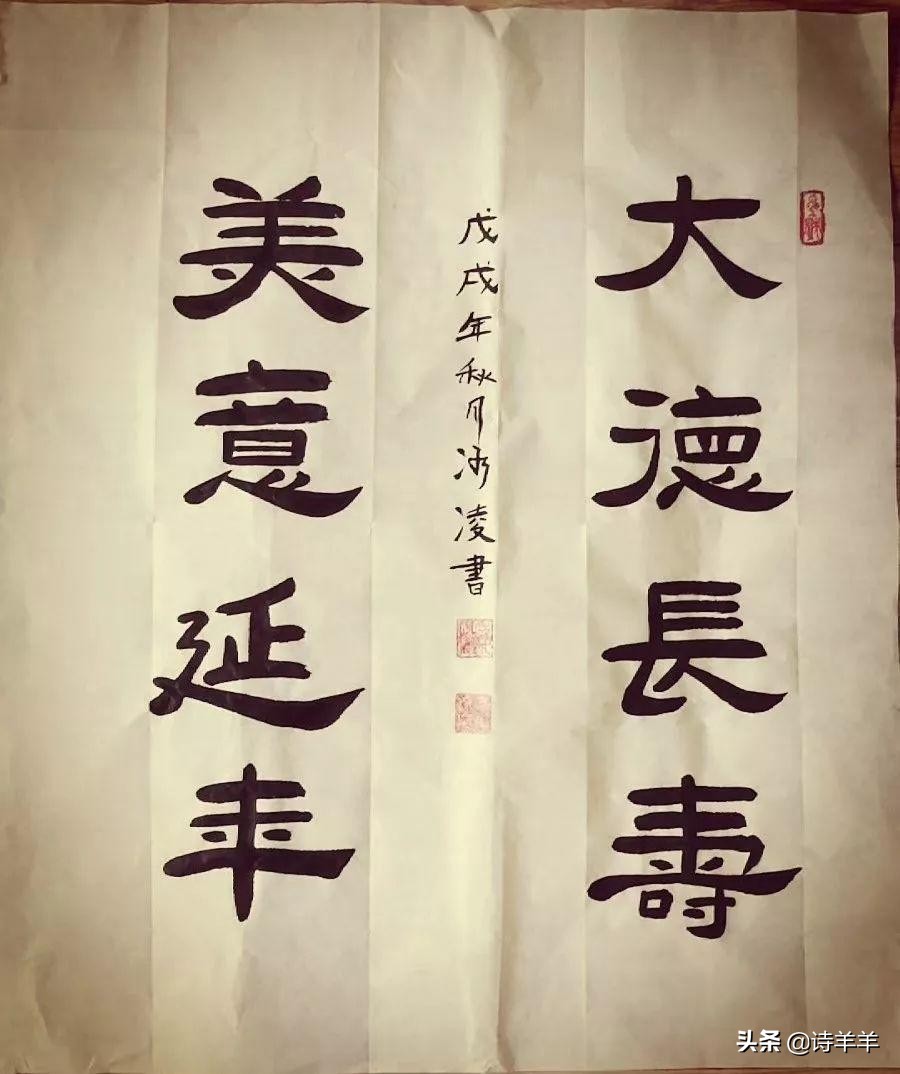 大德長壽
戊戌年秋月冰凌書
美意延年
头条 @诗羊羊